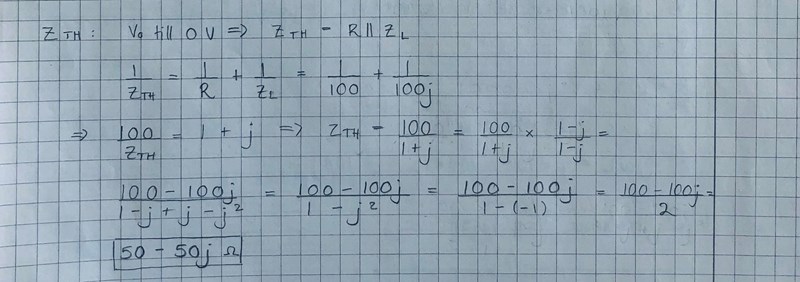 Z_TH : V_0 till 0 V => Z_TH - R || Z_L
1/Z_TH = 1/R + 1/Z_L = 1/100 + 1/100j
=> 100/Z_TH = 1 + j => Z_TH - 100/(1+j) = 100/(1+j) × (1-j)/(1-j) =
(100 - 100j)/(1 - j + j - j²) = (100 - 100j)/(1 - j²) = (100 - 100j)/(1 - (-1)) = (100 - 100j)/2 =
50 - 50j Ω